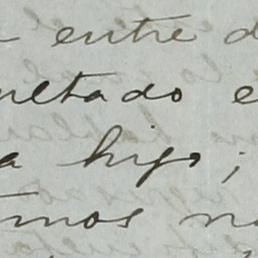 entre d
ultado e
a hijo;
mos no